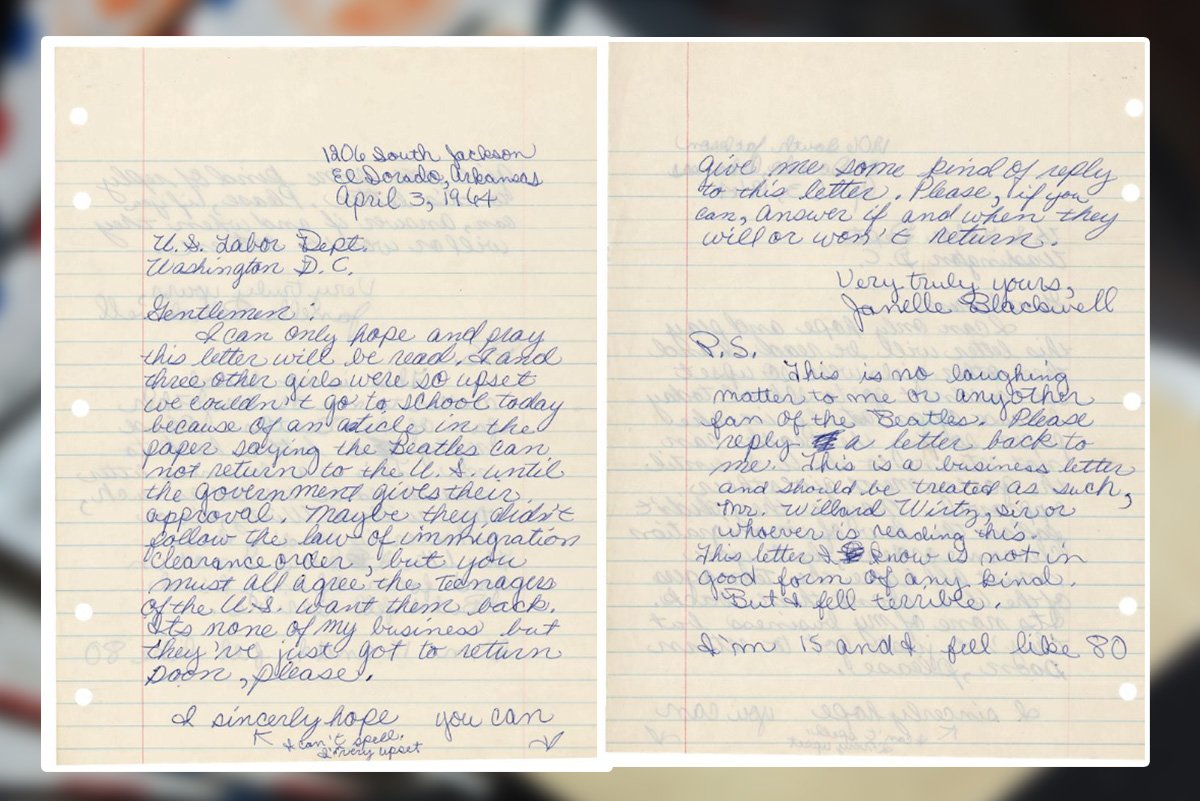 1206 South Jackson
El Dorado, Arkansas
April 3, 1964
U.S. Labor Dept.
Washington D.C.
Gentlemen:
I can only hope and pray
this letter will be read. I and
three other girls were so upset
we couldn't go to school today
because of an aticle in the
paper saying the Beatles can
not return to the U.S. until
the government gives their
approval. Maybe they didn't
follow the law of immigration
clearance order, but you
must all agree the teenages
of the U.S. want them back.
Its none of my business but
they've just got to return
soon, please.
I sincerly hope you can
I can't spell.
I'm very upset
give me some kind of reply
to this letter. Please, if you
can, answer if and when they
will or won't return.
Very truly yours,
Janelle Blackwell
P.S.
This is no laughing
matter to me or any other
fan of the Beatles. Please
reply a letter back to
me. This is a business letter
and should be treated as such,
Mr. Willard Wirtz, sir, or
whoever is reading this.
This letter I know is not in
good form of any kind.
But I fell terrible.
I'm 15 and I feel like 80